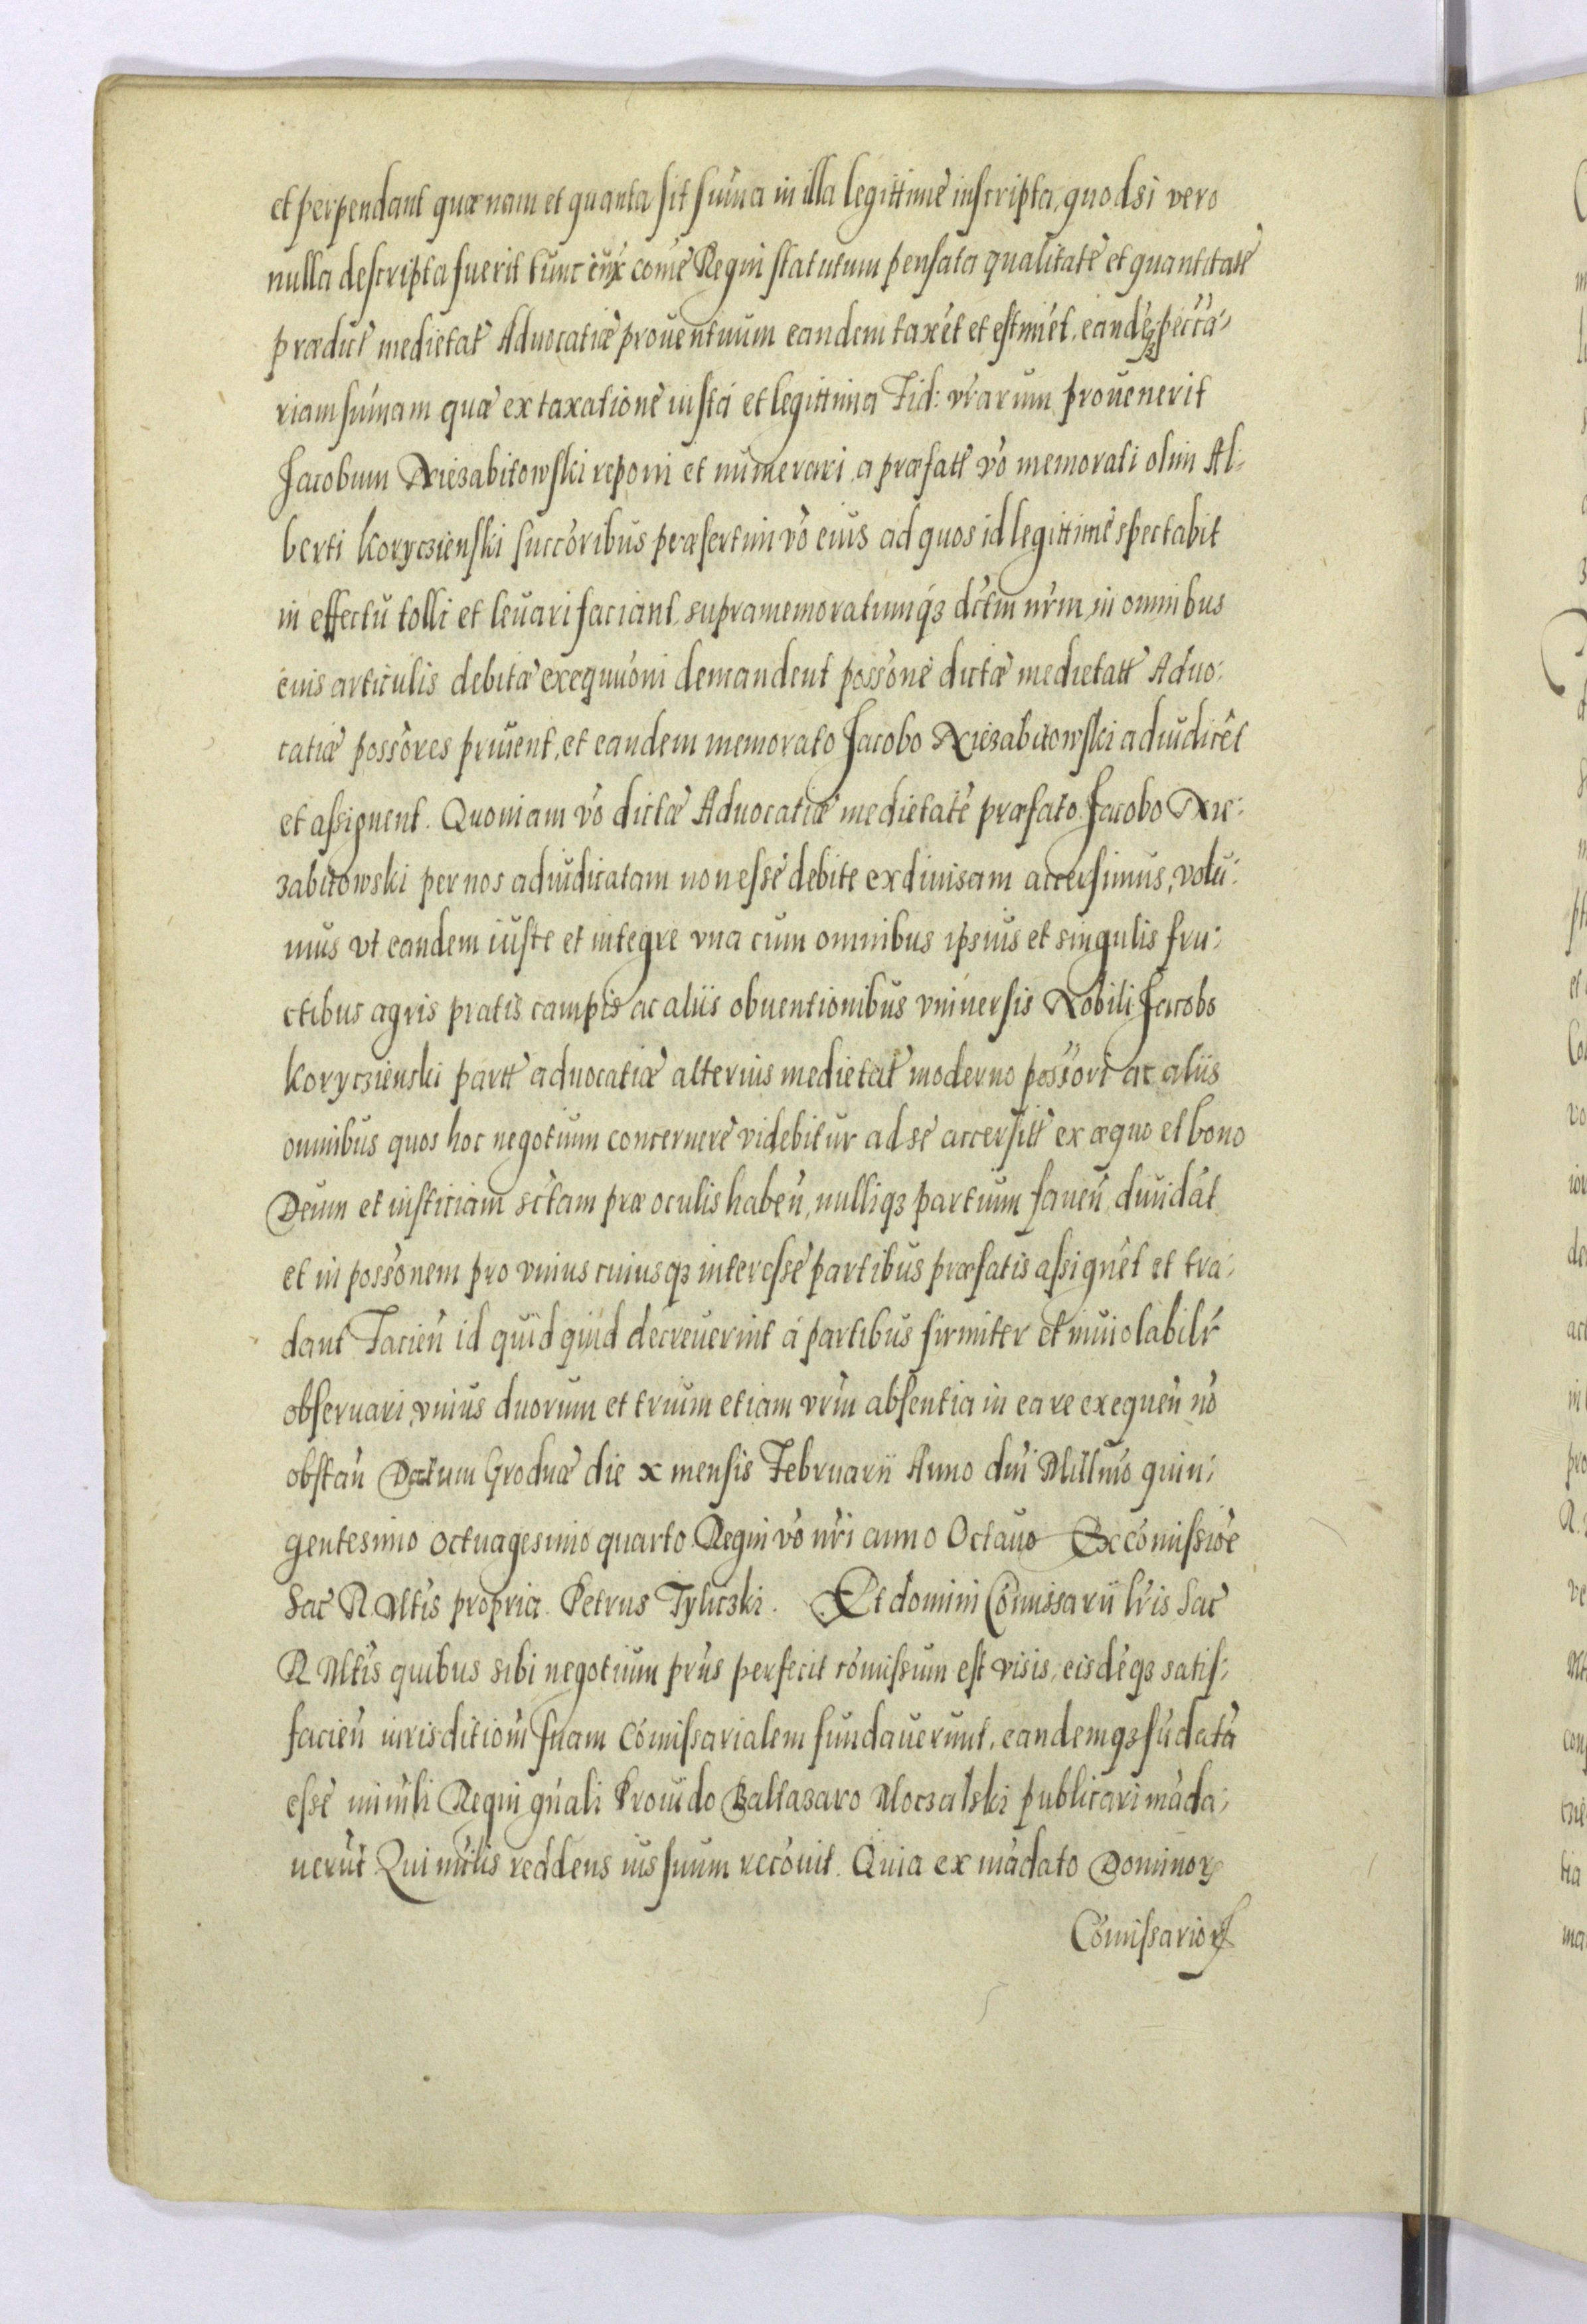 et perpendant quænam et quanta sit suma in illa legittimè inscripta, quodsi vero
nulla descripta fuerit tunc iux come Regni statutum pensata qualitatè et quantitatè
prædict medietat Advocatiæ prouentuum eandem taxet et estimet, eandeqz pecca-
riam sumam quæ ex taxationè iusta et legittima Fid: vrarum prouenerit
Jacobum Niezabitowski reponi et numerari a præfatt vo memorati olim Al-
berti Koryczienski succoribus præsertim vo eius ad quos id legittimè spectabit
in effectu tolli et leuari faciant, supramemoratumqz dctm nrm in omnibus
euis articulis debitæ exequuoni demandent possone dictæ medietatt Aduo:
catiæ possores priuent, et eandem memorato Jacobo Niezabitowski adiudicet
et assignent. Quoniam vo dictæ Advocatiæ medietatè præfato Jacobo Nie:
zabitowski per nos adiudicatam non essè debite exdiuisam accersimus, volu:
mus vt eandem iuste et integre vna cum omnibus ipsius et singulis fru:
ctibus agris pratis campis ac aliis obuentionibus vniuersis Nobili Jacobo
Koryczienski partt aduocatiæ alterius medietat moderno possori ac aliis
omnibus quos hoc negotium concernerè videbitur ad sè accersitt ex æquo et bono
Deum et iustitiam sctam præ oculis haben, nulliqz partium fauen, diuidat
et in possonem pro vnius cuiusqz interessè partibus præfatis assignet et tra:
dant Facien id quidquid decreuerint à partibus firmiter et inuiolabilr
obseruari, vnius duorum et trium etiam vrm absentia in ea re exequen no
obstan Datum Grodnæ die x mensis Februarii Anno dni Millmo quin:
gentesimo octuagesimo quarto Regni vo nri anno Octauo Ex comissioe
Sac R. Mtis propria. Petrus Tyliczki. Et domini Comissarii lris Sac
R Mtis quibus sibi negotium prus perfecit comissum est visis, eisdeqz satis:
facien iurisditiom suam Comissarialem fundauerunt, eandemqz fudata
essè minrli Regni gnali Prouido Baltazaro Moczalski publicari mada:
uerut Qui mrlis reddens ius suum recouit. Quia ex madato Dominor
Comissarior